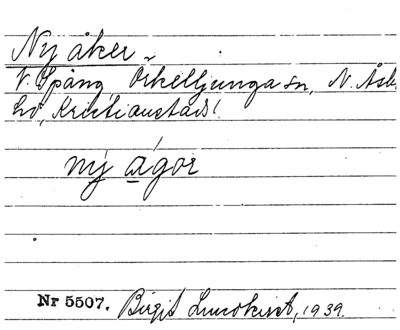 Ny åker
V. Spång Örkelljunga sn, N. Åsb.
hd, Kristianstads l.
ný a̲'gor
Nr 5507. Birgit Lundkvist, 1939.